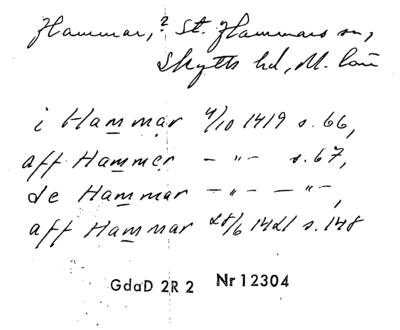 Hammar, ? St. Hammars sn,
Skytts hd, M. län
i Hammar 4/10 1419 s. 66,
aff Hammer – " – s. 67,
de Hammar – " – – " –,
aff Hammar 28/6 1421 s. 148
GdaD 2R 2 Nr 12304